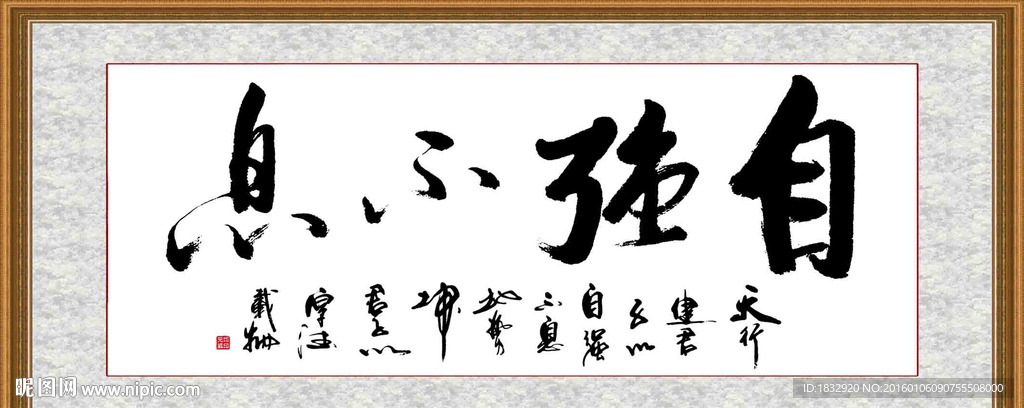 自强不息
天行
健君
子以
自强
不息
地勢
坤
君子以
厚德
載物
昵图网 www.nipic.com
ID:1832920 NO:20160106090755508000